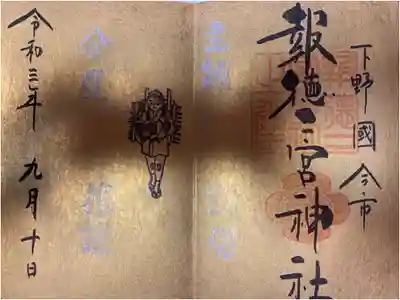 下野國 今市
報徳二宮神社
至誠
分度
令和三年 九月十日